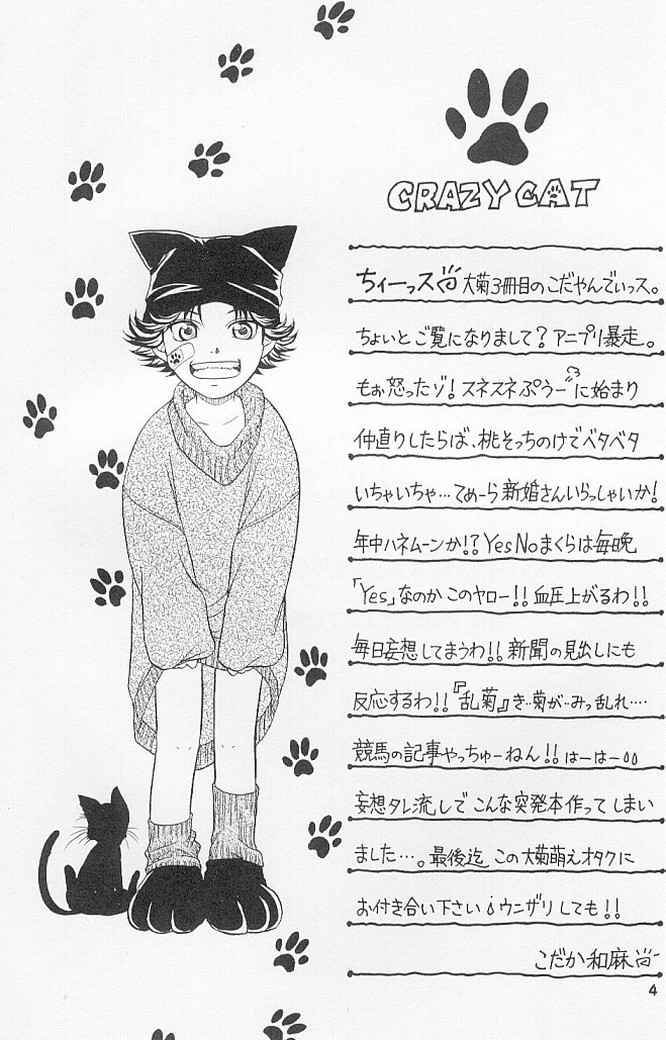 CRAZY CAT
ちィーっス 大菊3冊目のこだやんでいっス。
ちょいとご覧になりまして？アニプリ暴走。
もぉ怒ったゾ！スネスネぷうーに始まり
仲直りしたらば、桃そっちのけでベタベタ
いちゃいちゃ…てめーら新婚さんいらっしゃいか！
年中ハネムーンか!?YesNoまくらは毎晩
「Yes」なのかこのヤロー!!血圧上がるわ!!
毎日妄想してまうわ!!新聞の見出しにも
反応するわ!!『乱菊』き…菊が…みっ乱れ‥‥
競馬の記事やっちゅーねん!!はーはー
妄想タレ流しでこんな突発本作ってしまい
ました…。最後迄この大菊萌えオタクに
お付き合い下さい ウニザリしても!!
こだか和麻
4